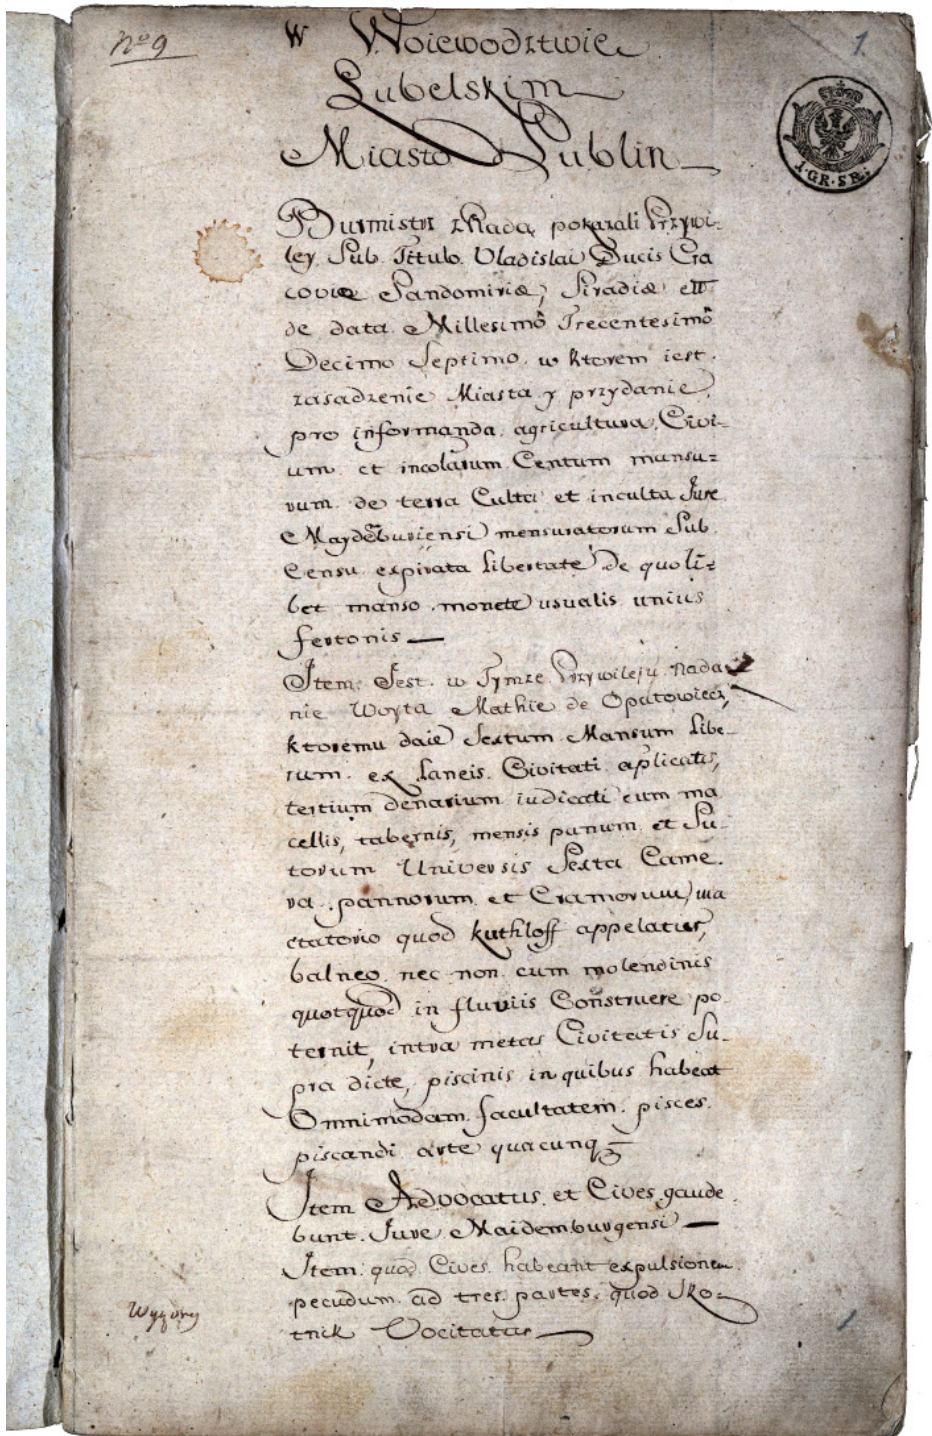 No 9
1.
W Woiewodztwie
Lubelskim
Miasto Lublin
1. GR. SR.
Burmistrz z Radą pokazali Przywi-
ley Sub Titulo Vladislai Ducis Cra
coviæ Sandomiriæ, Siradiæ etc
de data Millesimo Trecentesimo
Decimo Septimo w ktorem iest
zasadzenie Miasta y przydanie
pro informanda agricultura Civi-
um et incolarum Centum mansu-
rum de terra Culta et inculta Jure
Maydeburiensi mensuratorum Sub
Censu expirata libertate De quoli-
bet manso monete usualis unius
fertonis
Item Jest w Tymze Przywileju Nada
nie Woyta Mathie de Opatowiecz,
ktoremu daie Sextum Mansum libe-
rum ex laneis Civitati aplicatis,
tertium denarium iudicati cum ma
cellis, tabernis, mensis panum et Su-
torum Universis Sexta Came-
ra pannorum et Cramorum, ma
ctatorio quod kuthloff appelatur,
balneo nec non cum molendinis
quotquod in fluviis Construere po
ternit, intra metas Civitatis Su-
pra dicte, piscinis in quibus habeat
Omnimodam facultatem pisces
piscandi arte quacunq
Item Advocatus et Cives gaude
bunt Jure Maidemburgensi
Item quod Cives habeant expulsionem
pecudum ad tres partes quod Sko-
tnik Vocitatur